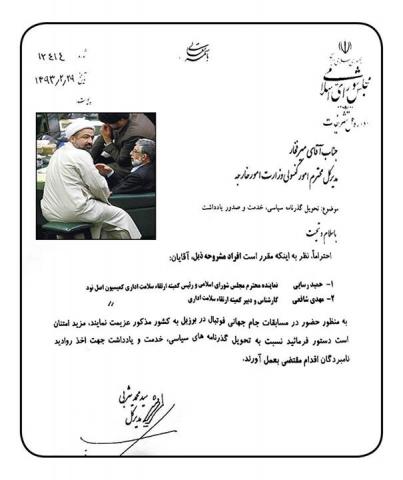 باسمه تعالی
جمهوری اسلامی ایران
مجلس شورای اسلامی
اداره کل تشریفات
شماره ۱۲۴۱۴
تاریخ ۱۳۹۳/۲/۲۹
جناب آقای مهرفتار
مدیرکل محترم امور کنسولی وزارت امور خارجه
موضوع: تحویل گذرنامه سیاسی، خدمت و صدور یادداشت
باسلام و تحیت
احتراماً، نظر به اینکه مقرر است افراد مشروحه ذیل، آقایان:
۱- حمید رسایی نماینده محترم مجلس شورای اسلامی و رئیس کمیته ارتقاء سلامت اداری کمیسیون اصل نود
۲- مهدی شافعی کارشناس و دبیر کمیته ارتقاء سلامت اداری //
به منظور حضور در مسابقات جام جهانی فوتبال در برزیل به کشور مذکور عزیمت نمایند، مزید امتنان
است دستور فرمائید نسبت به تحویل گذرنامه های سیاسی، خدمت و یادداشت جهت اخذ روادید
نامبردگان اقدام مقتضی بعمل آورند.
سید محمد یثربی
مدیرکل